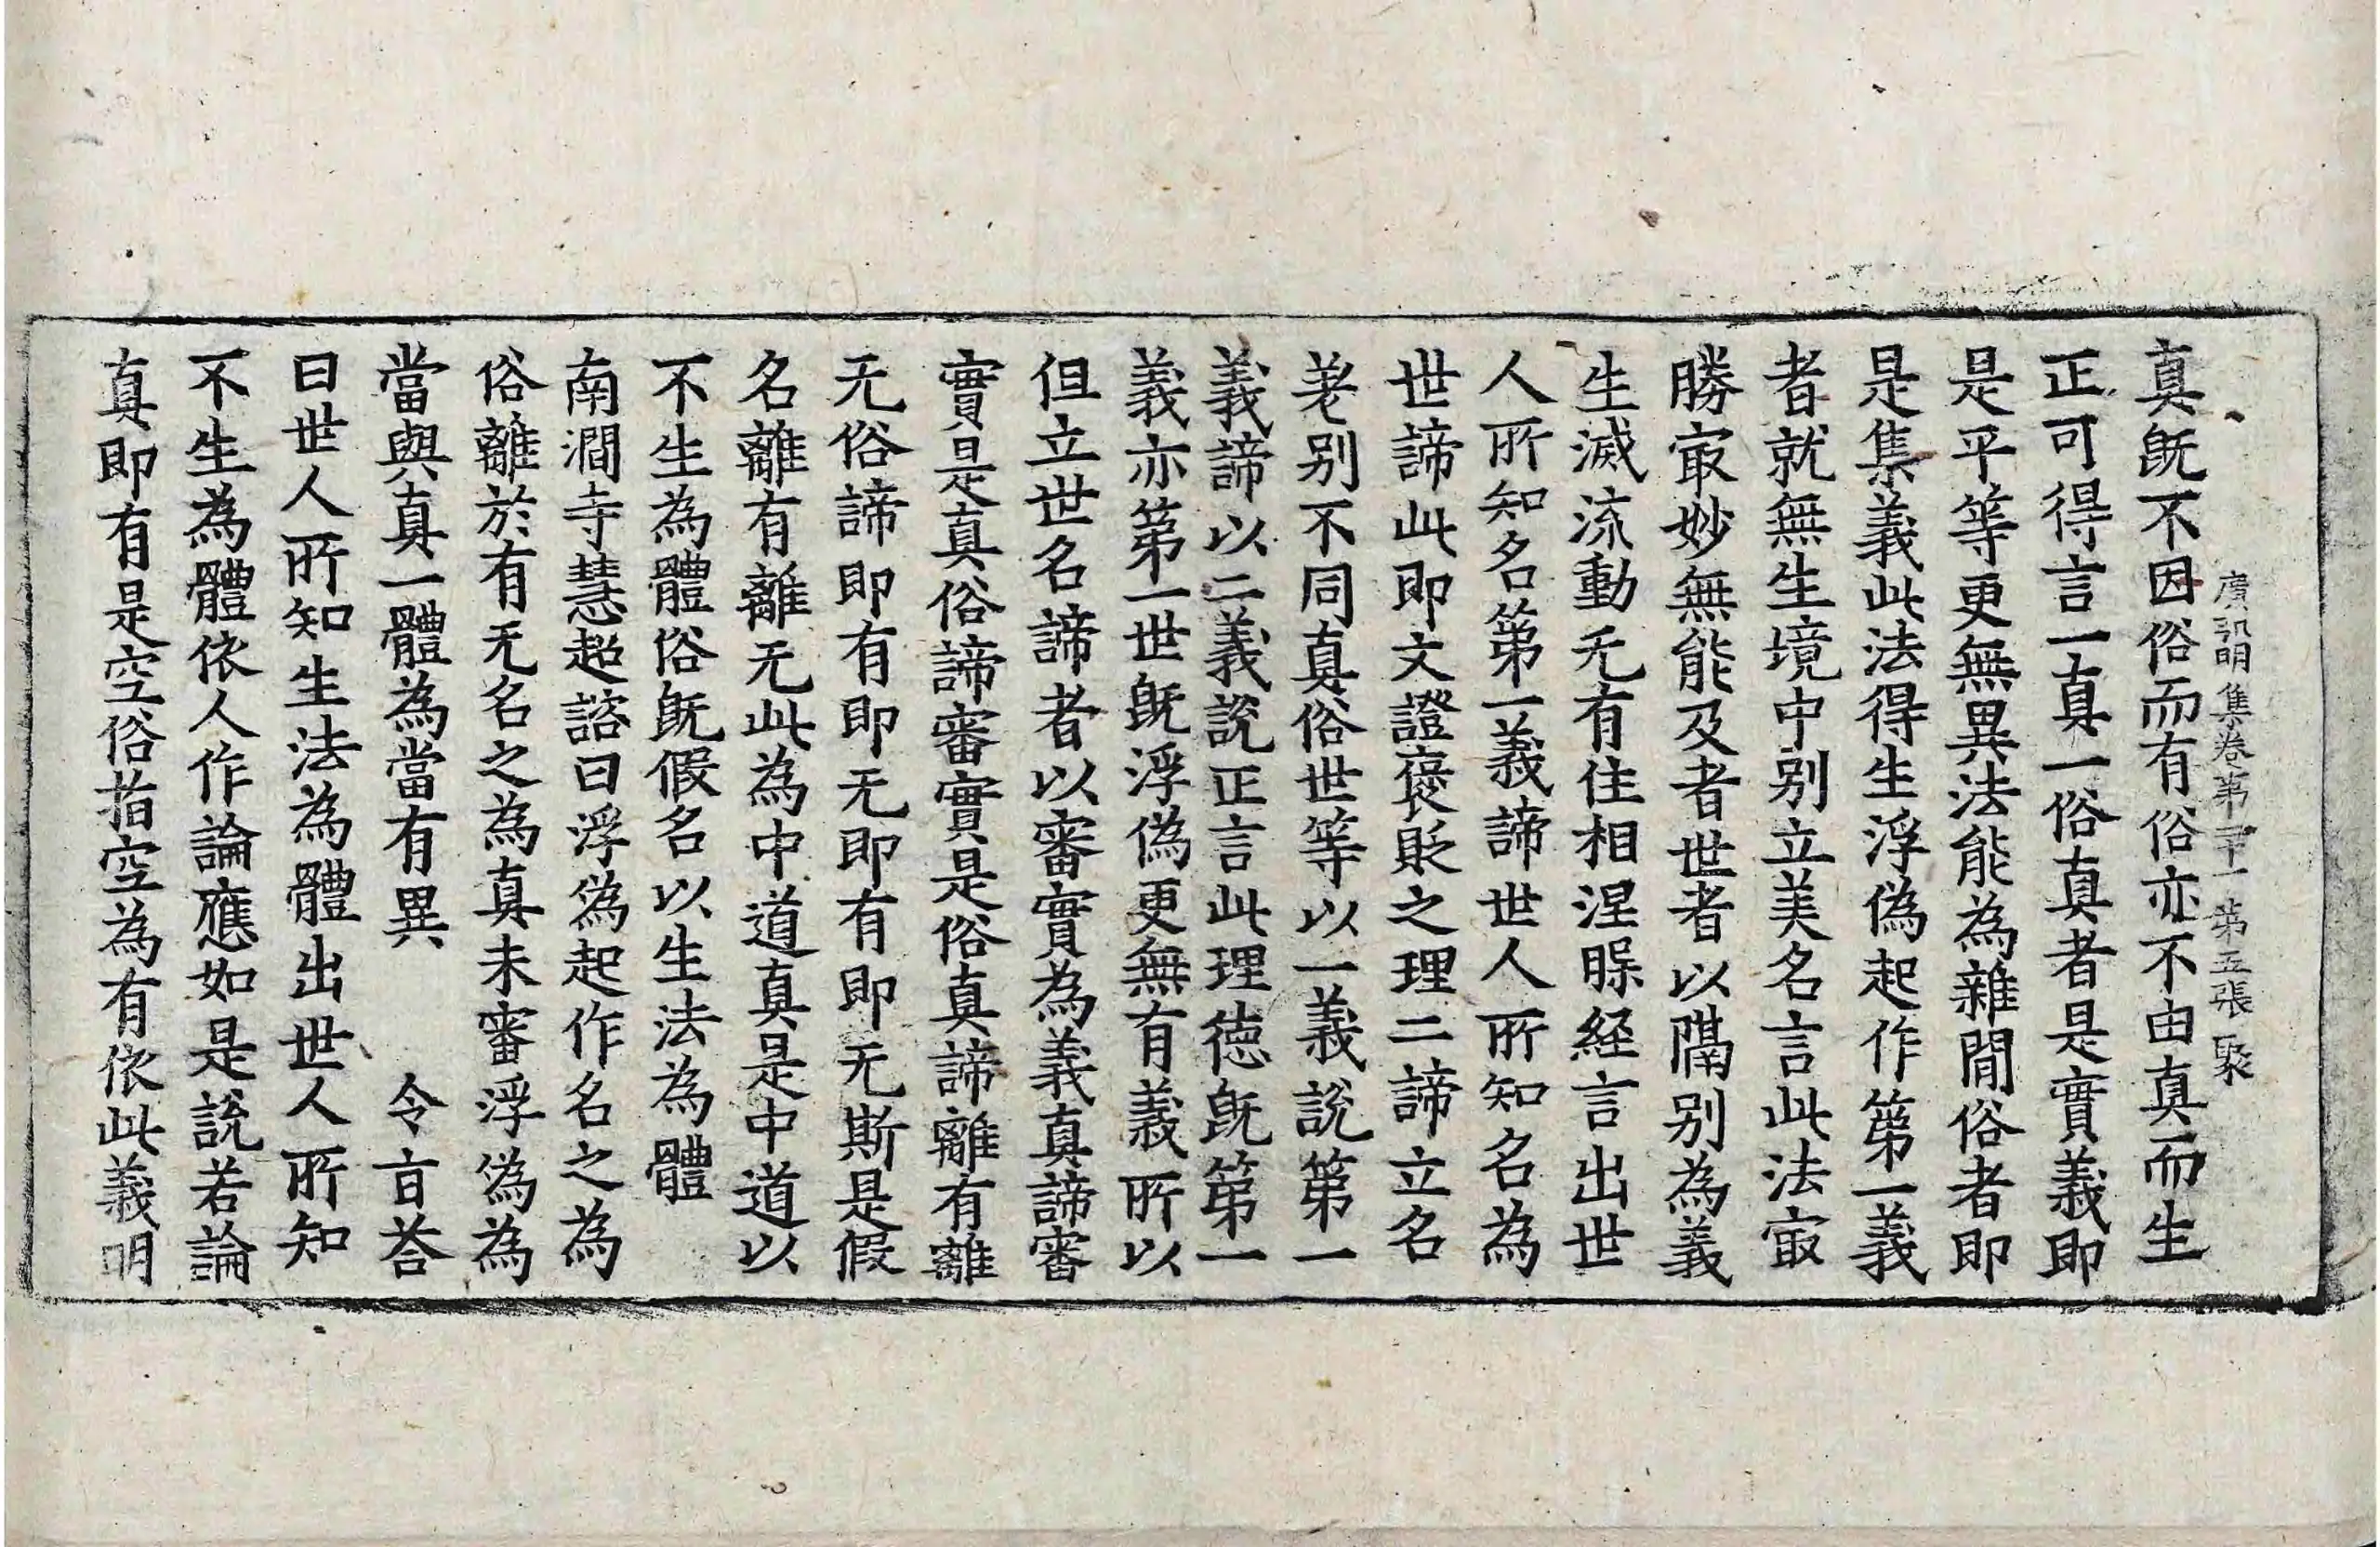 廣弘明集卷第二十一 第五張 聚
真旣不因俗而有俗亦不由真而生
正可得言一真一俗真者是實義即
是平等更無異法能為雜間俗者即
是集義此法得生浮偽起作第一義
者就無生境中别立美名言此法㝡
勝㝡妙無能及者世者以隔别為義
生滅流動无有住相涅槃経言出世
人所知名第一義諦世人所知名為
世諦此即文證襃貶之理二諦立名
差别不同真俗世等以一義說第一
義諦以二義說正言此理德旣第一
義亦第一世旣浮偽更無有義所以
但立世名諦者以審實為義真諦審
實是真俗諦審實是俗真諦離有離
无俗諦即有即无即有即无斯是假
名離有離无此為中道真是中道以
不生為體俗旣假名以生法為體
南澗寺慧超諮曰浮偽起作名之為
俗離於有无名之為真未審浮偽為
當與真一體為當有異 令旨荅
曰世人所知生法為體出世人所知
不生為體依人作論應如是說若論
真即有是空俗指空為有依此義明